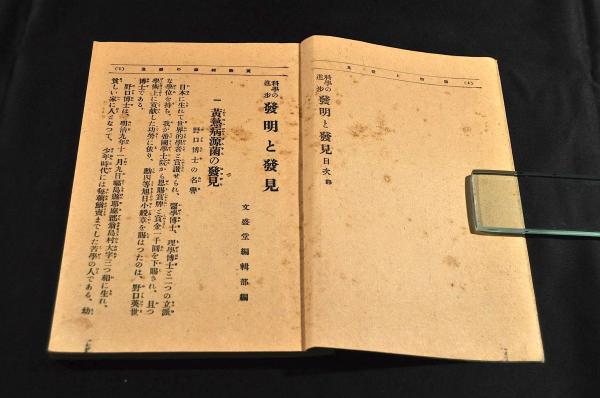 (4)
科學の進步 發明と發見 目次 終
(1)
科學の進步 發明と發見
文盛堂編輯部編
一 黃熱病源菌の發見
野口博士の名譽
日本に生れて世界的學者と賞讃せられ、醫學博士、理學博士と二つの立派
な學位を持ち、我が帝國學士院から恩賜賞牌と賞金一千圓を下賜され、且つ
學術上に貢獻した功勞に依り、勳四等旭日小綬章を賜はつたのは、野口英世
博士である。
野口博士は、明治九年十一月九日福島縣耶麻郡翁島村大字三つ和に生れ、
貧しい家に人となつて、少年時代には每朝鰌賣までした苦學の人である。幼